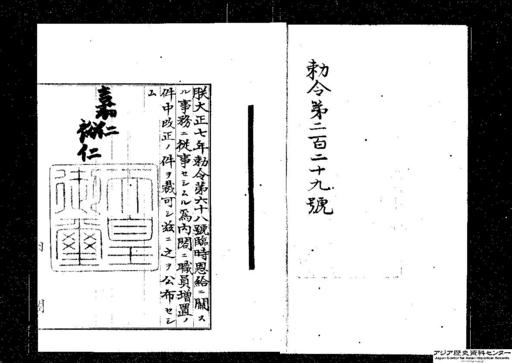 勅令第二百二十九號
朕大正七年勅令第六十八號臨時恩給ニ關ス
ル事務ニ從事セシムル爲内閣ニ職員増置ノ
件中改正ノ件ヲ裁可シ茲ニ之ヲ公布セシ
ム
嘉仁
裕仁
天皇御璽
内閣
アジア歴史資料センター
Japan Center for Asian Historical Records